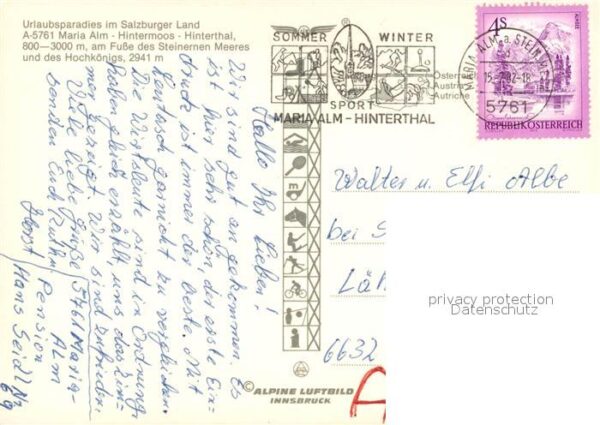 Urlaubsparadies im Salzburger Land
A-5761 Maria Alm - Hintermoos - Hinterthal,
800—3000 m, am Fuße des Steinernen Meeres
und des Hochkönigs, 2941 m
SOMMER WINTER
SPORT
MARIA ALM - HINTERTHAL
Österrei
Austria
Autriche
4 S
REPUBLIK ÖSTERREICH
MARIA ALM a. STEIN
5761
Hallo Ihr Lieben!
Wir sind gut angekommen. Es
ist hier sehr schön, der erste Ein-
druck ist immer der beste. Mit
garnicht zu vergleichen.
Die Wirtsleute sind in Ordnung,
haben gleich erzählt, uns das Zim-
mer gezeigt. Wir sind zufrieden.
Viele liebe Grüße
senden Euch Ruth u.
Horst
5761 Maria-
Alm
Pension
Hans Seidl Nr.
69
Walter u. Elfi Albe
bei S
Lä
6632
privacy protection
Datenschutz
© ALPINE LUFTBILD
INNSBRUCK